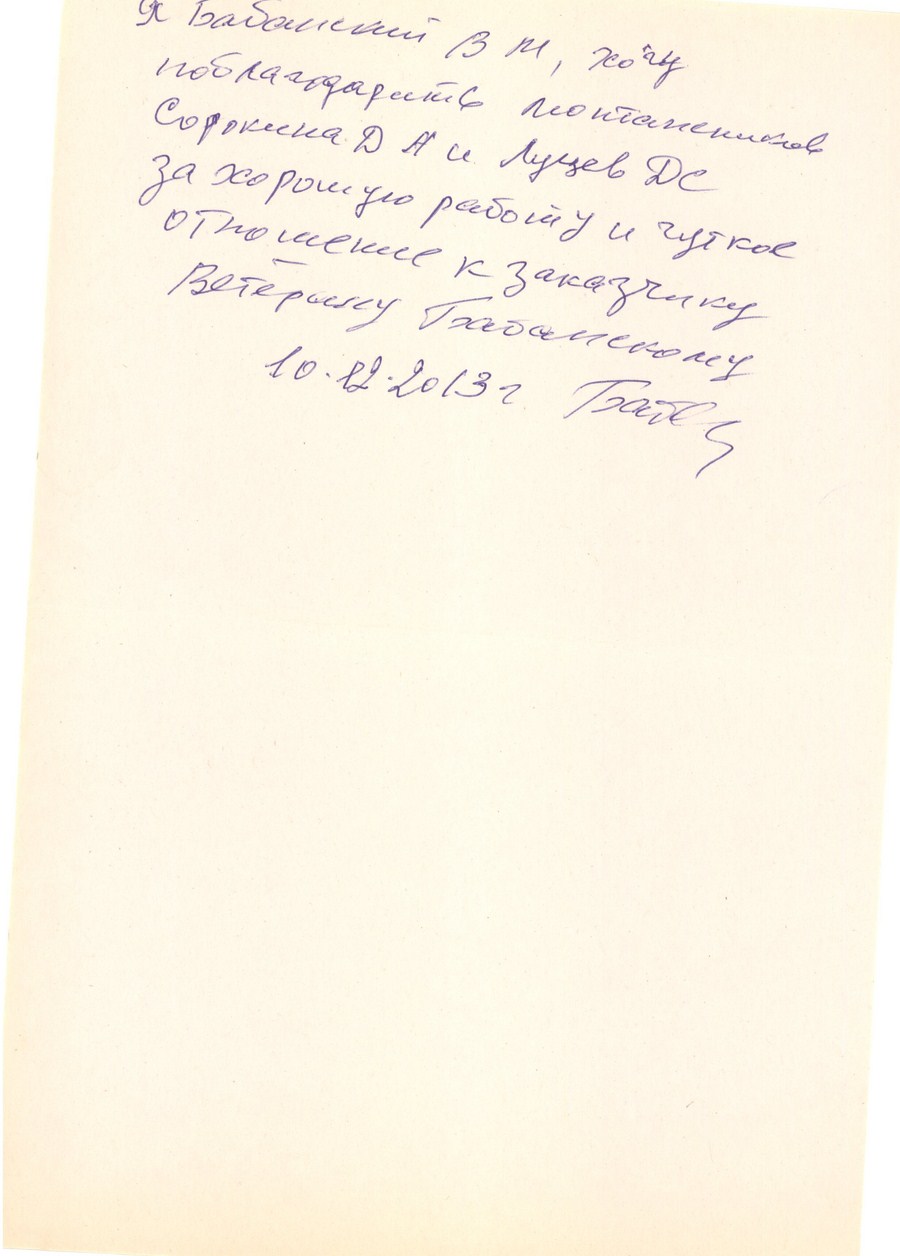 Я Бабанский В М, хочу
поблагодарить монтажников
Сорокина Д А и Лущев ДС
за хорошую работу и чуткое
отношение к заказчику
Ветерану Бабанскому
10.12.2013г